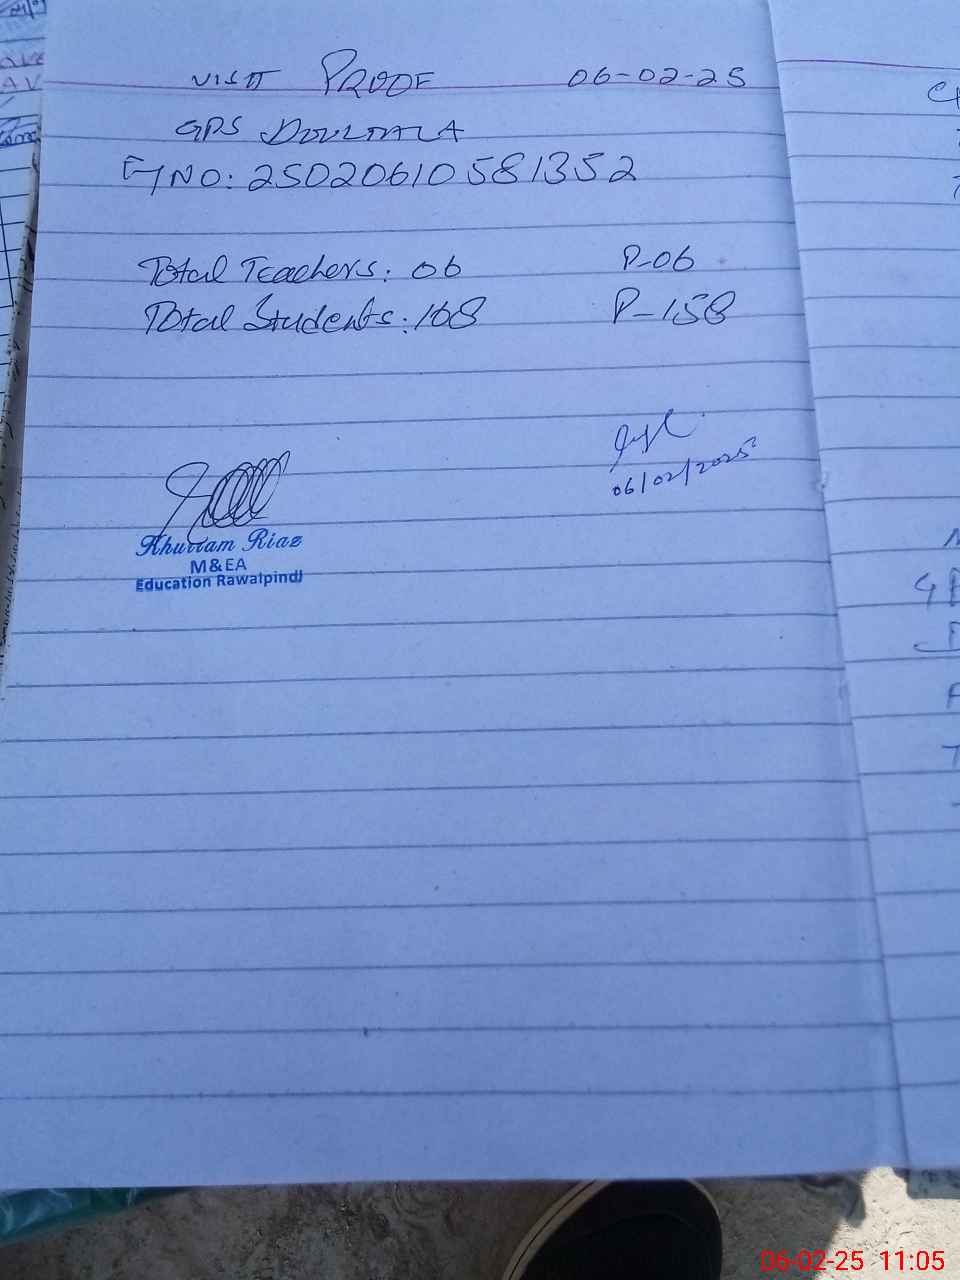 VISIT PROOF 06-02-25
GPS DOULTALA
F/NO: 25020610581352
Total Teachers: 06 P-06
Total Students: 168 P-158
06/02/2025
Khurram Riaz
M&EA
Education Rawalpindi
06-02-25 11:05